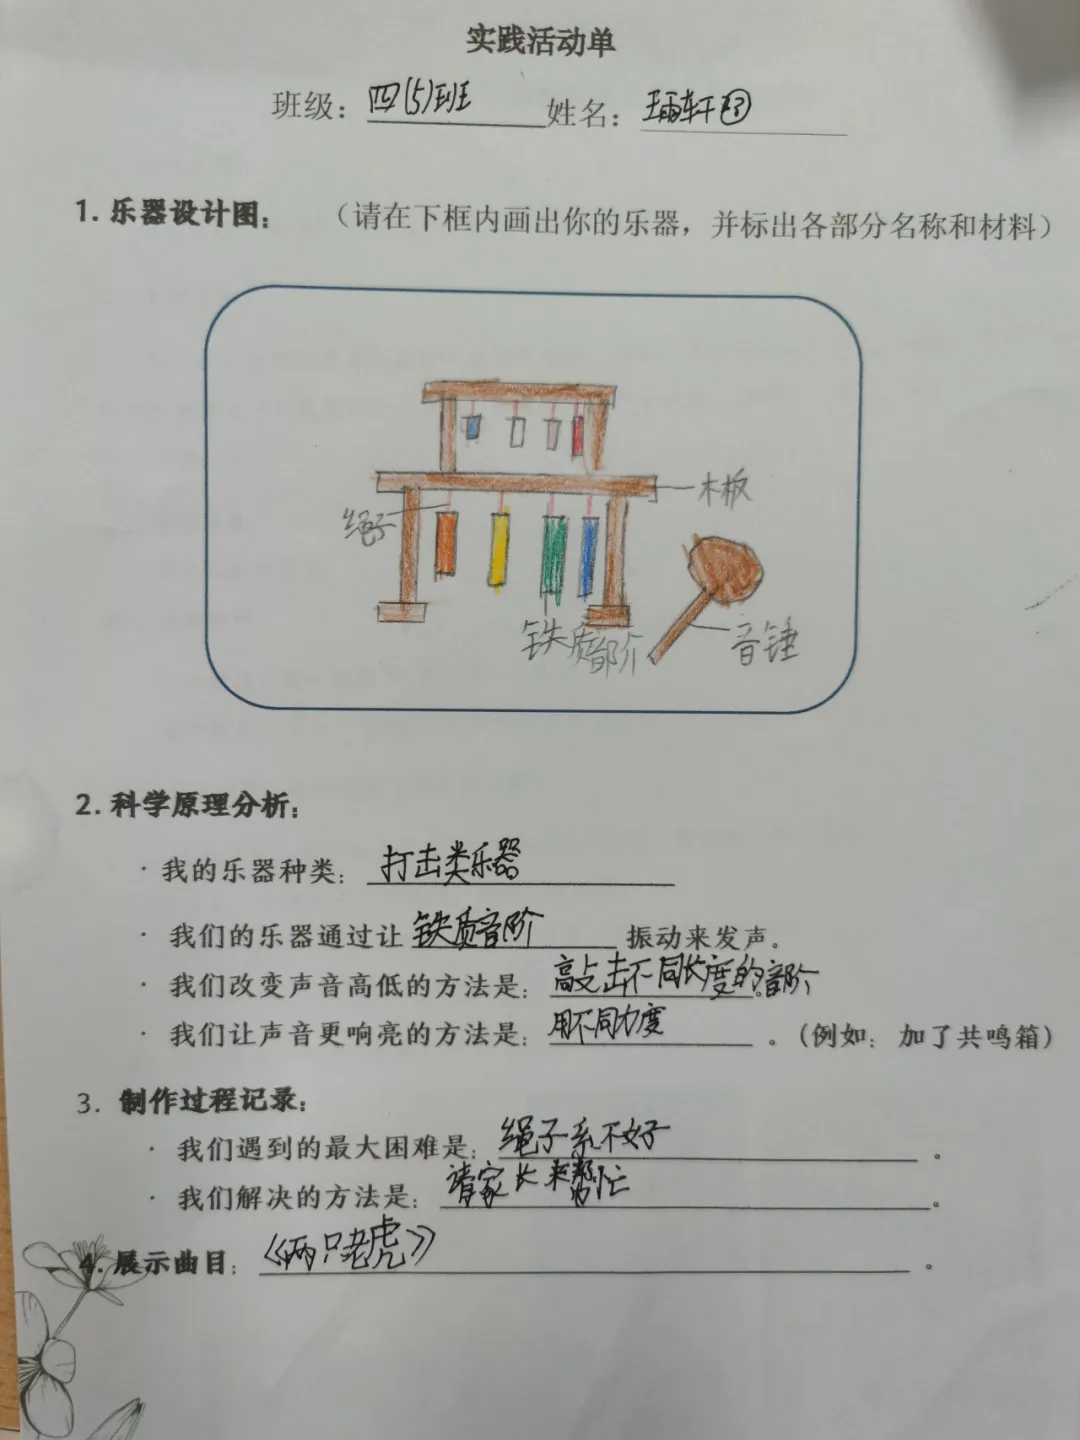 实践活动单
班级：四(5)班 姓名：轩
1. 乐器设计图： （请在下框内画出你的乐器，并标出各部分名称和材料）
木板
绳子
铁质部介
音锤
2. 科学原理分析：
· 我的乐器种类：打击类乐器
· 我们的乐器通过让 铁质音阶 振动来发声。
· 我们改变声音高低的方法是：敲击不同长度的音阶。
· 我们让声音更响亮的方法是：用不同力度。（例如：加了共鸣箱）
3. 制作过程记录：
· 我们遇到的最大困难是：绳子系不好。
· 我们解决的方法是：请家长来帮忙。
4. 展示曲目：《两只老虎》。